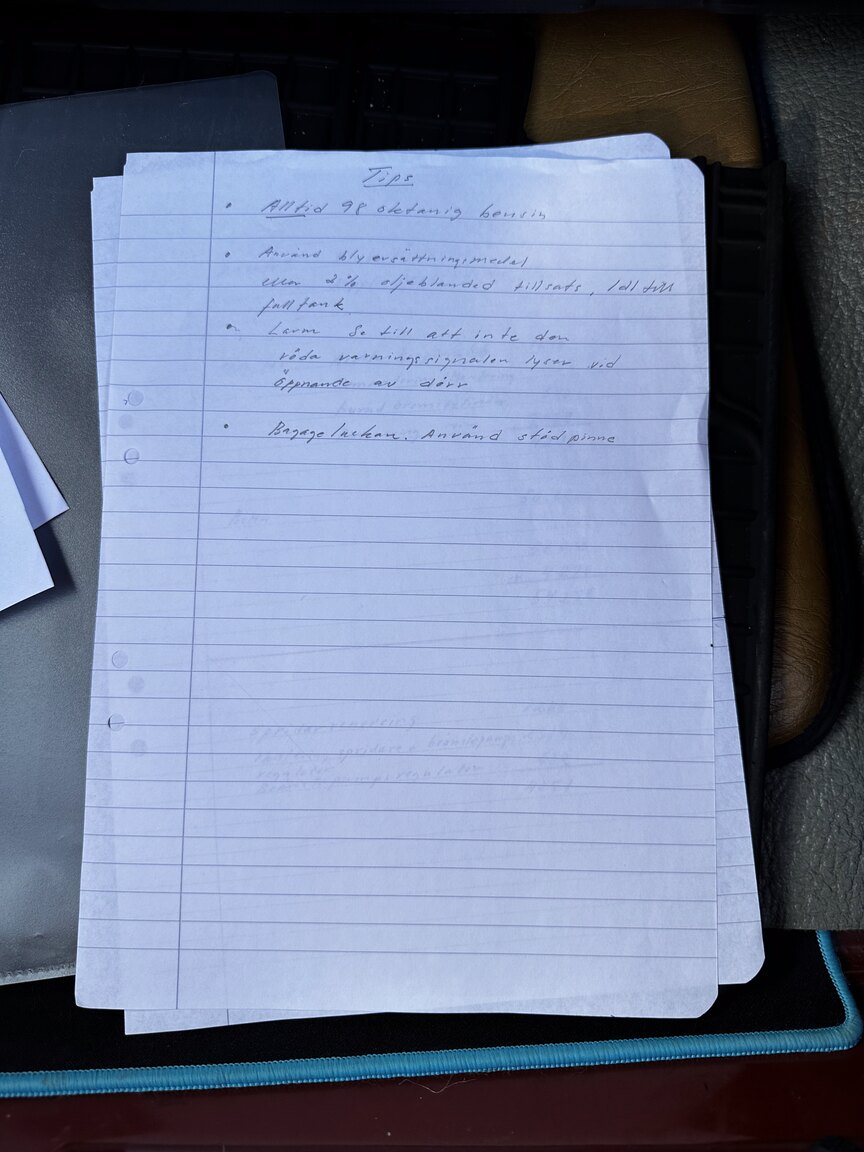 Tips
• Alltid 98 oktanig bensin
• Använd blyersättningsmedel
eller 2% oljeblanded tillsats, 1dl till
full tank
• Larm Se till att inte den
röda varningssignalen lyser vid
öppnande av dörr
• Bagageluckan. Använd stödpinne